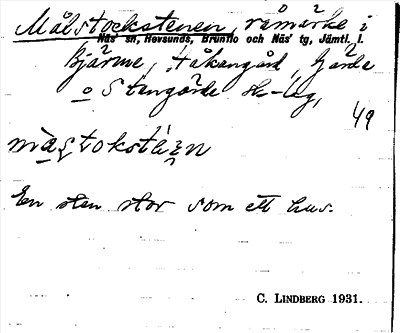 Målstockstenen, råmärke i
Näs' sn, Hovsunds, Brunflo och Näs' tg, Jämtl. l.
Bjärme, Håkangård, Gärde
o Stengärde sk-lag,
49
En sten stor som ett hus.
C. LINDBERG 1931.